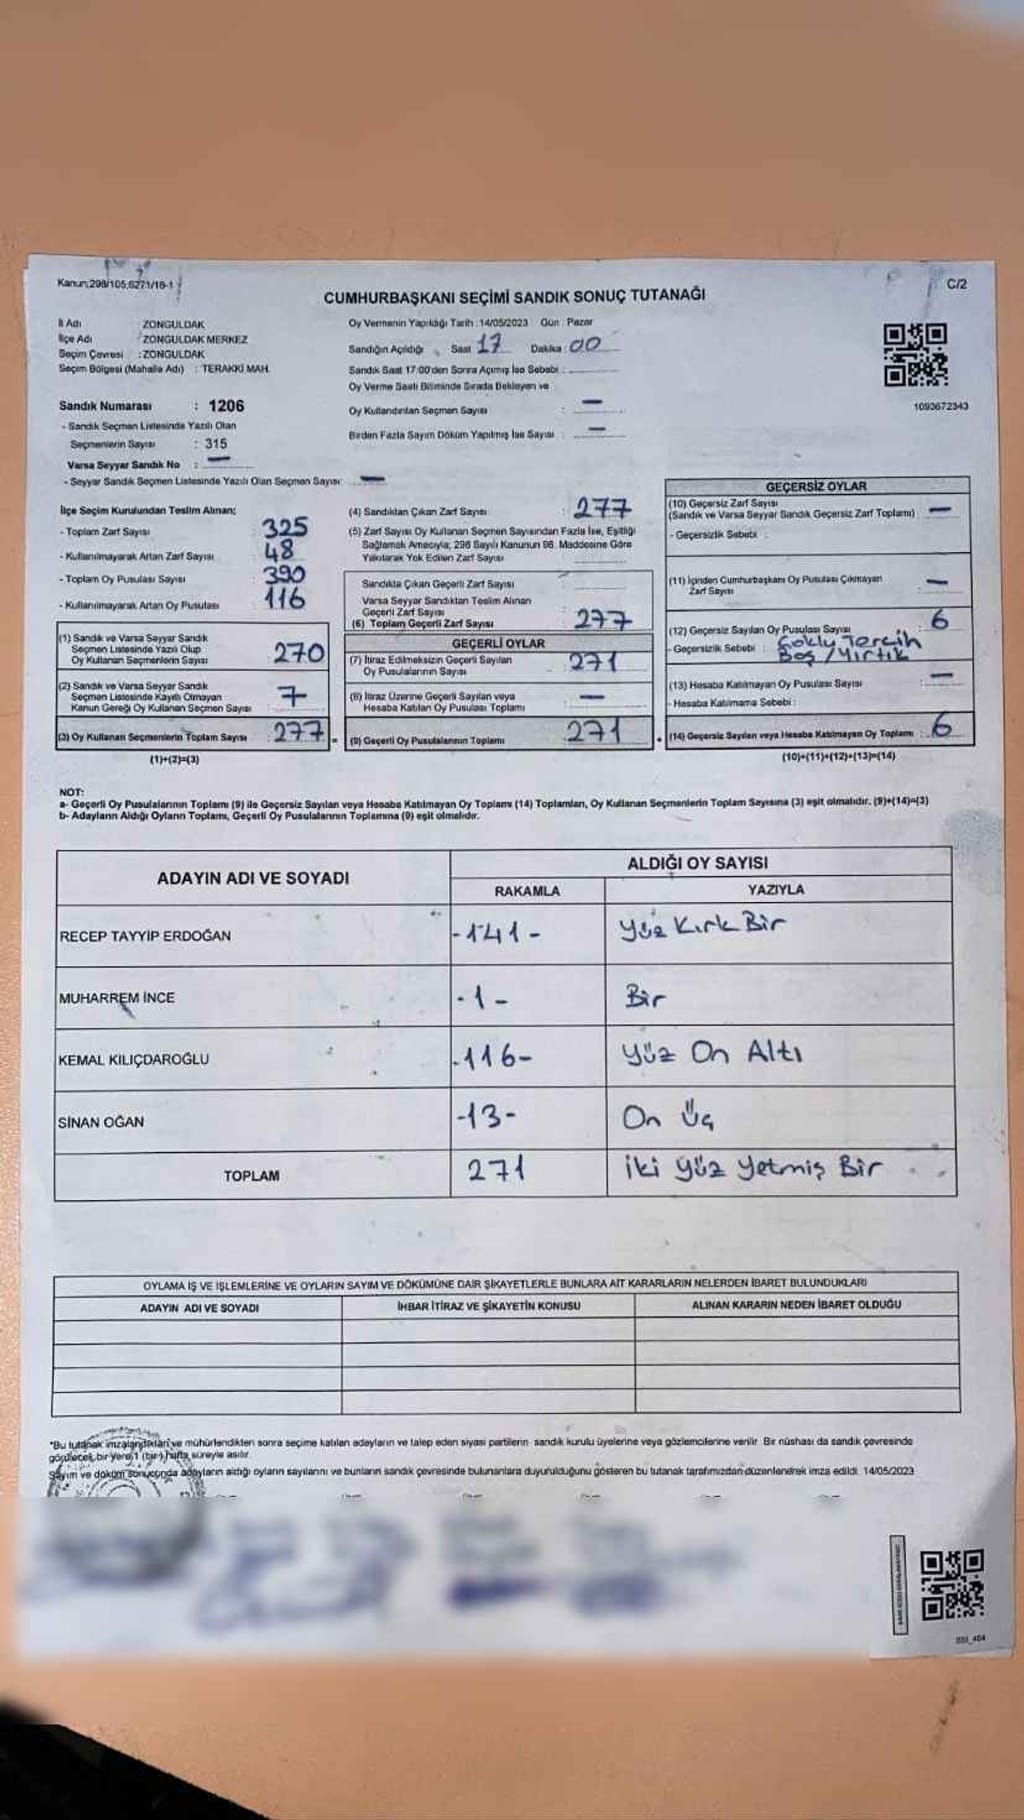 Kanun;298/105,6271/18-1
C/2
CUMHURBAŞKANI SEÇİMİ SANDIK SONUÇ TUTANAĞI
İl Adı : ZONGULDAK
İlçe Adı : ZONGULDAK MERKEZ
Seçim Çevresi : ZONGULDAK
Seçim Bölgesi (Mahalle Adı) : TERAKKİ MAH.
Sandık Numarası : 1206
- Sandık Seçmen Listesinde Yazılı Olan
Seçmenlerin Sayısı : 315
Varsa Seyyar Sandık No : —
- Seyyar Sandık Seçmen Listesinde Yazılı Olan Seçmen Sayısı: —
Oy Vermenin Yapıldığı Tarih :14/05/2023 Gün : Pazar
Sandığın Açıldığı Saat 17 Dakika : 00
Sandık Saat 17:00'den Sonra Açılmış İse Sebebi :
Oy Verme Saati Bitiminde Sırada Bekleyen ve
Oy Kullandırılan Seçmen Sayısı : —
Birden Fazla Sayım Döküm Yapılmış İse Sayısı : —
1093672343
İlçe Seçim Kurulundan Teslim Alınan;
- Toplam Zarf Sayısı 325
- Kullanılmayarak Artan Zarf Sayısı 48
- Toplam Oy Pusulası Sayısı 390
- Kullanılmayarak Artan Oy Pusulası 116
(1) Sandık ve Varsa Seyyar Sandık
Seçmen Listesinde Yazılı Olup
Oy Kullanan Seçmenlerin Sayısı : 270
(2) Sandık ve Varsa Seyyar Sandık
Seçmen Listesinde Kayıtlı Olmayan
Kanun Gereği Oy Kullanan Seçmen Sayısı 7
(3) Oy Kullanan Seçmenlerin Toplam Sayısı : 277 =
(1)+(2)=(3)
(4) Sandıktan Çıkan Zarf Sayısı : 277
(5) Zarf Sayısı Oy Kullanan Seçmen Sayısından Fazla İse, Eşitliği
Sağlamak Amacıyla; 298 Sayılı Kanunun 98. Maddesine Göre
Yakılarak Yok Edilen Zarf Sayısı
Sandıkta Çıkan Geçerli Zarf Sayısı :
Varsa Seyyar Sandıktan Teslim Alınan
Geçerli Zarf Sayısı :
(6) Toplam Geçerli Zarf Sayısı 277
GEÇERLİ OYLAR
(7) İtiraz Edilmeksizin Geçerli Sayılan
Oy Pusulalarının Sayısı : 271
(8) İtiraz Üzerine Geçerli Sayılan veya
Hesaba Katılan Oy Pusulası Toplamı : —
(9) Geçerli Oy Pusulalarının Toplamı : 271 +
GEÇERSİZ OYLAR
(10) Geçersiz Zarf Sayısı
(Sandık ve Varsa Seyyar Sandık Geçersiz Zarf Toplamı) : —
- Geçersizlik Sebebi :
(11) İçinden Cumhurbaşkanı Oy Pusulası Çıkmayan
Zarf Sayısı : —
(12) Geçersiz Sayılan Oy Pusulası Sayısı : 6
- Geçersizlik Sebebi : Çoklu Tercih
Boş / Yırtık
(13) Hesaba Katılmayan Oy Pusulası Sayısı : —
- Hesaba Katılmama Sebebi :
(14) Geçersiz Sayılan veya Hesaba Katılmayan Oy Toplamı : 6
(10)+(11)+(12)+(13)=(14)
NOT:
a- Geçerli Oy Pusulalarının Toplamı (9) ile Geçersiz Sayılan veya Hesaba Katılmayan Oy Toplamı (14) Toplamları, Oy Kullanan Seçmenlerin Toplam Sayısına (3) eşit olmalıdır. (9)+(14)=(3)
b- Adayların Aldığı Oyların Toplamı, Geçerli Oy Pusulalarının Toplamına (9) eşit olmalıdır.
ADAYIN ADI VE SOYADI
ALDIĞI OY SAYISI
RAKAMLA YAZIYLA
RECEP TAYYİP ERDOĞAN -141- Yüz Kırk Bir
MUHARREM İNCE -1- Bir
KEMAL KILIÇDAROĞLU -116- Yüz On Altı
SİNAN OĞAN -13- On Üç
TOPLAM 271 İki Yüz Yetmiş Bir
OYLAMA İŞ VE İŞLEMLERİNE VE OYLARIN SAYIM VE DÖKÜMÜNE DAİR ŞİKAYETLERLE BUNLARA AİT KARARLARIN NELERDEN İBARET BULUNDUKLARI
ADAYIN ADI VE SOYADI İHBAR İTİRAZ VE ŞİKAYETİN KONUSU ALINAN KARARIN NEDEN İBARET OLDUĞU
*Bu tutanak imzalandıktan ve mühürlendikten sonra seçime katılan adayların ve talep eden siyasi partilerin sandık kurulu üyelerine veya gözlemcilerine verilir. Bir nüshası da sandık çevresinde
görülecek bir yere 1 (bir) hafta süreyle asılır.
Sayım ve döküm sonucunda adayların aldığı oyların sayılarını ve bunların sandık çevresinde bulunanlara duyurulduğunu gösteren bu tutanak tarafımızdan düzenlenerek imza edildi. 14/05/2023